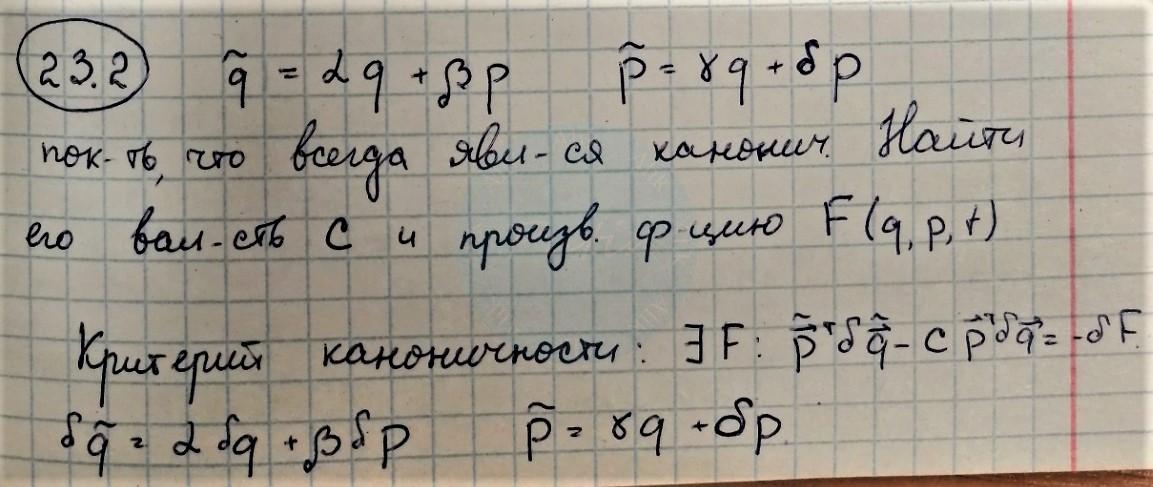 23.2 q̃ = αq + βp p̃ = γq + δp
пок-ть, что всегда явл-ся канонич. Найти
его вал-сть C и произв. ф-цию F(q, p, t)
Критерий каноничности: ∃ F: p̃ᵀδq̃ - C pᵀδq = -δF.
δq̃ = αδq + βδp p̃ = γq + δp